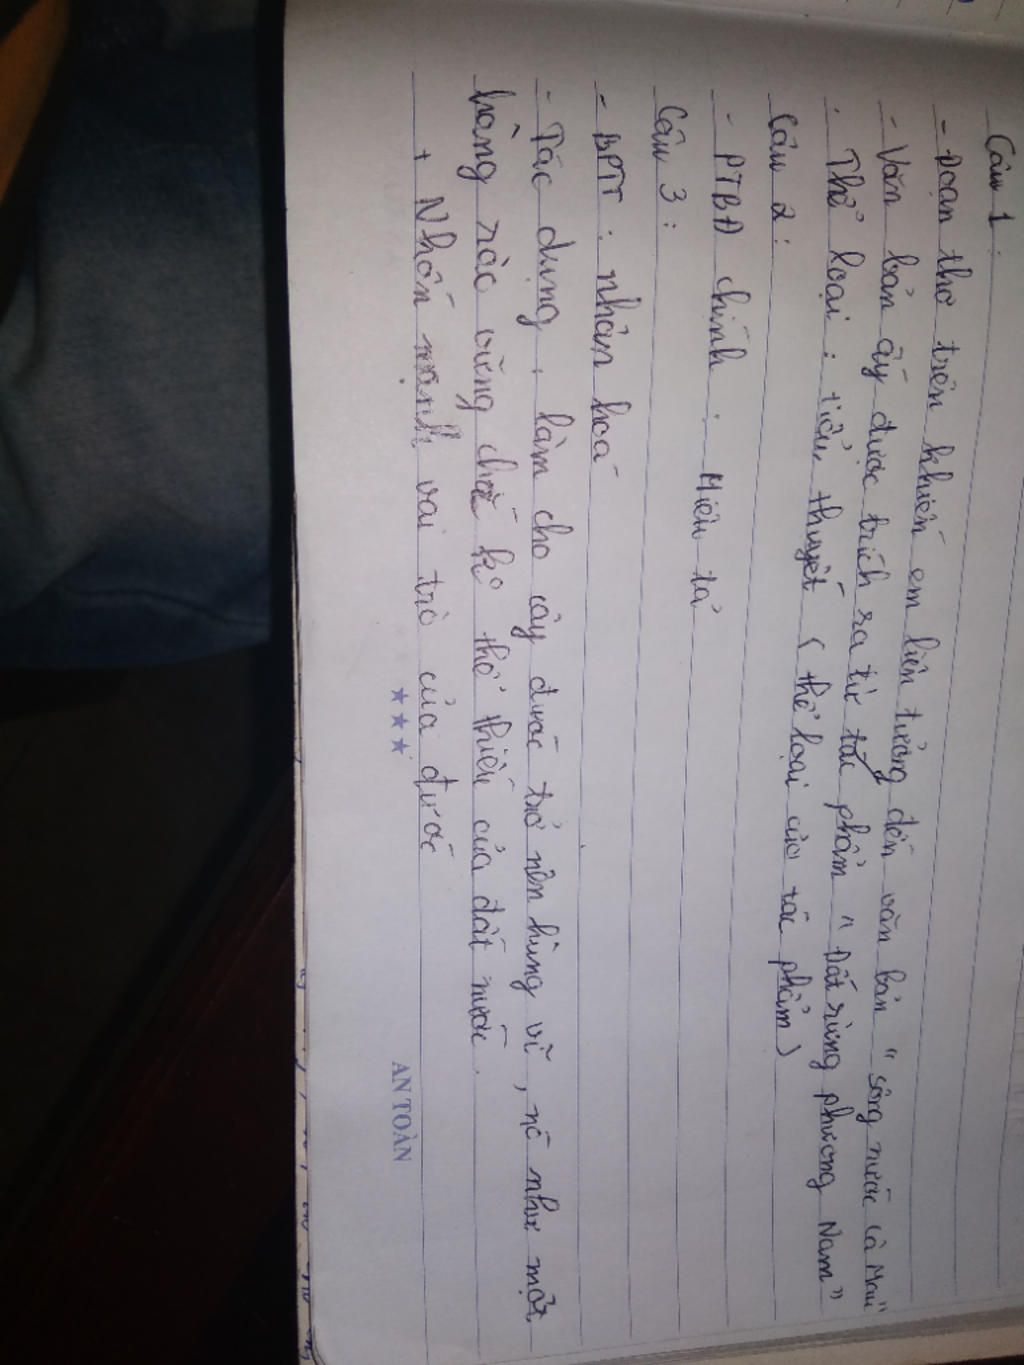 Câu 1:
- Đoạn thơ trên khiến em liên tưởng đến văn bản "sông nước Cà Mau"
- Văn bản ấy được trích ra từ tác phẩm "Đất rừng phương Nam"
. Thể loại : tiểu thuyết ( thể loại của tác phẩm )
Câu 2:
- PTBĐ chính : Miêu tả
Câu 3:
- BPTT : nhân hoá
- Tác dụng . làm cho cây đước trở nên hùng vĩ , nó như một
hàng rào vững chắc k thể thiếu của đất nước .
+ Nhấn mạnh vai trò của đước
★ ★ ★
AN TOÀN